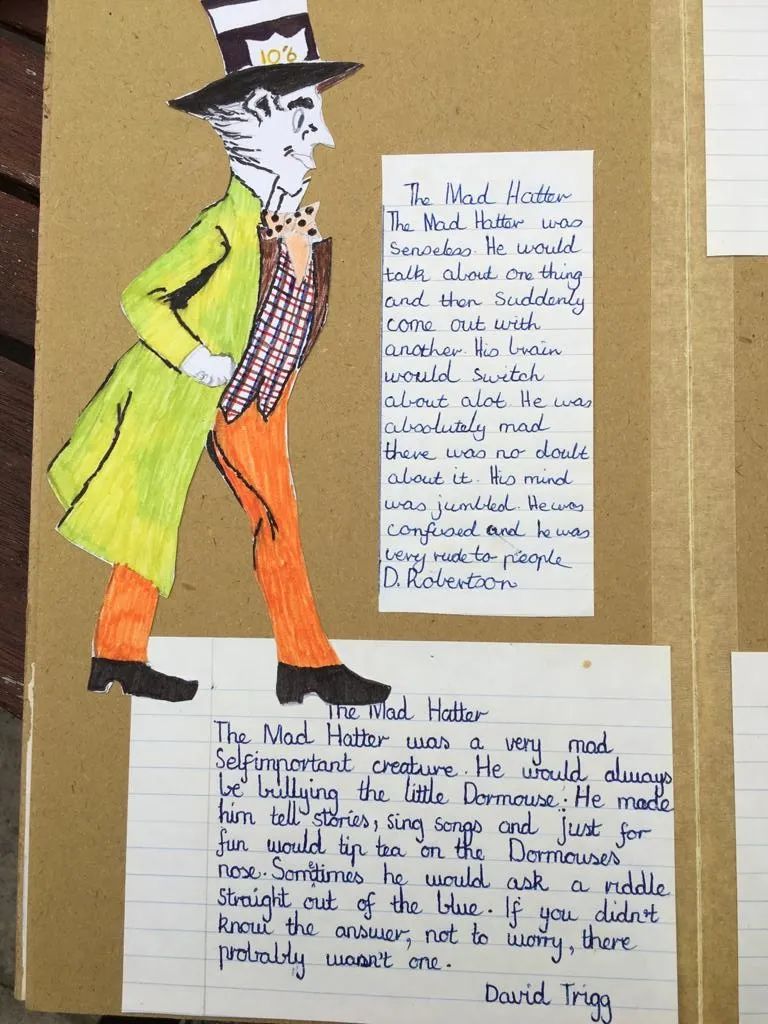 10'6
The Mad Hatter
The Mad Hatter was
senseless. He would
talk about one thing
and then suddenly
come out with
another. His brain
would switch
about alot. He was
absolutely mad
there was no doubt
about it. His mind
was jumbled. He was
confused and he was
very rude to people
D. Robertson
The Mad Hatter
The Mad Hatter was a very mad
Selfimportant creature. He would always
be bullying the little Dormouse. He made
him tell stories, sing songs and just for
fun would tip tea on the Dormouses
nose. Sometimes he would ask a riddle
straight out of the blue. If you didn't
know the answer, not to worry, there
probably wasn't one.
David Trigg